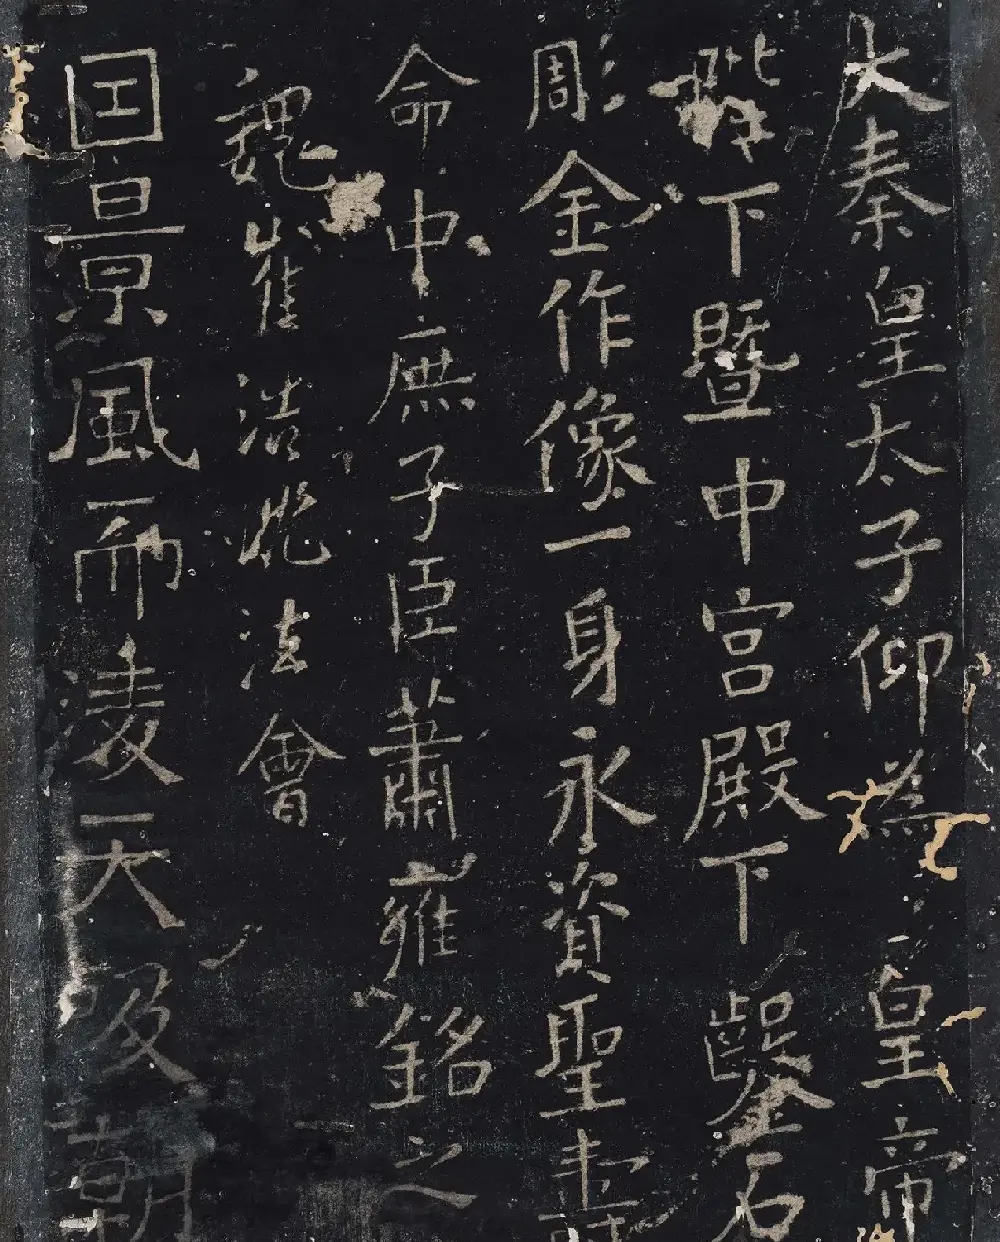 大秦皇太子仰為皇帝
陛下暨中宮殿下鑿石
彫金作像一身永資聖壽
命中庶子臣蕭雍銘之
魏崔浩此法會
国景風而凌天吸朝